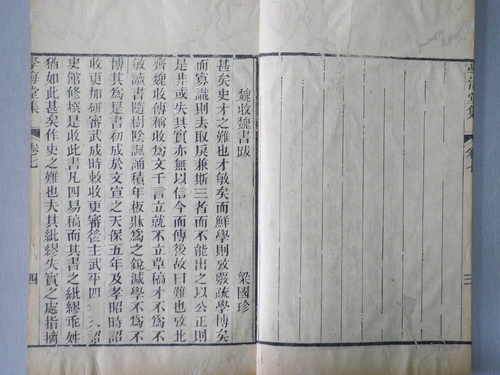 學海堂集 卷七 三
魏收魏書跋 梁國珍
甚矣史才之難也才敏矣而鮮學則攷覈疏學博矣
而寡識則去取戾兼斯三者而不能出之以公正則
是非或失其實亦無以信今而傳後故曰難也攷北
齊魏收傳稱收爲文千言立就不立草稿才不爲不
敏讀書隨樹陰諷誦積年板牀爲之銳減學不爲不
博其爲是書初成於文宣之天保五年及孝昭時詔
收更加研審武成時敕收更審後主武平四 詔
史館修撰是收此書凡四易稿而其書之紕繆乖
猶如此甚矣作史之難也夫其紕繆失實之處指摘
學海堂集 卷七 四